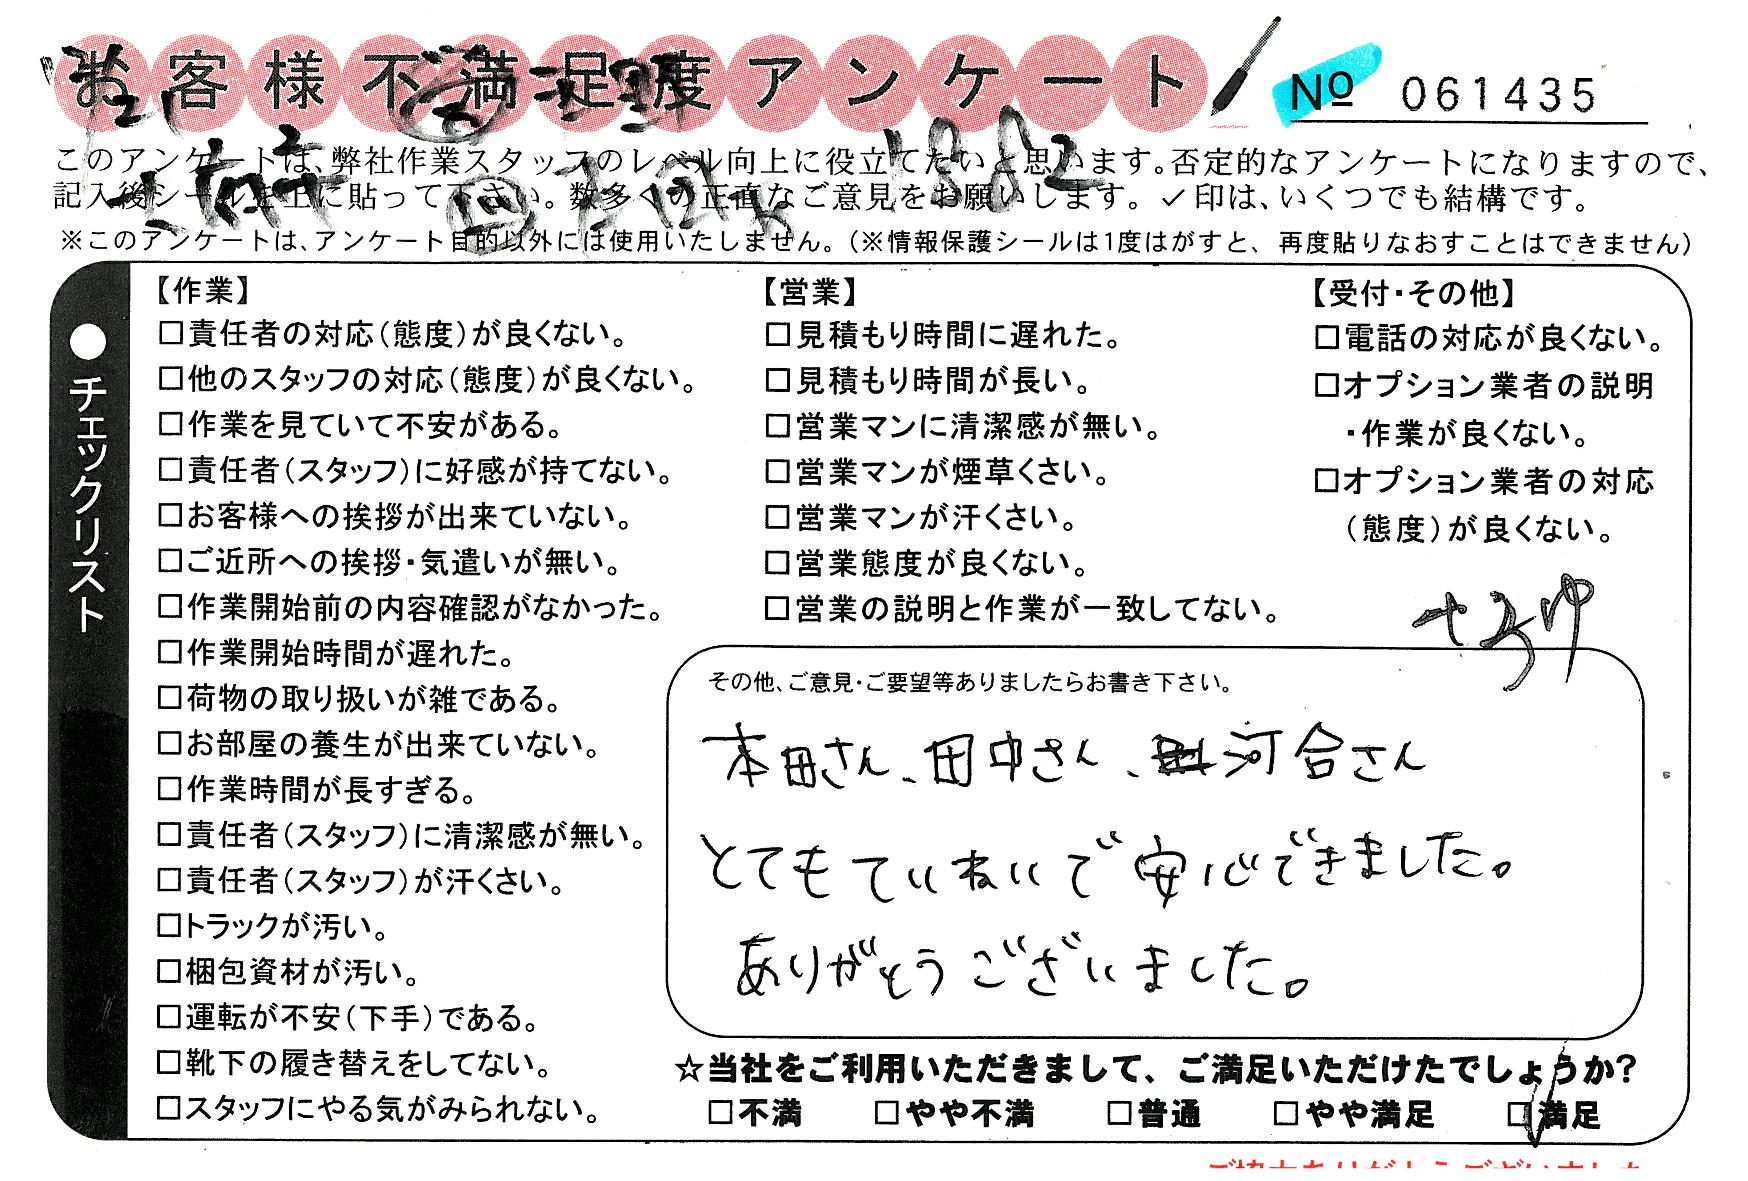 お客様不満足度アンケート
№ 061435
このアンケートは、弊社作業スタッフのレベル向上に役立てたいと思います。否定的なアンケートになりますので、
記入後シールを上に貼って下さい。数多くの正直なご意見をお願いします。✓印は、いくつでも結構です。
※このアンケートは、アンケート目的以外には使用いたしません。（※情報保護シールは1度はがすと、再度貼りなおすことはできません）
●チェックリスト
【作業】
□責任者の対応（態度）が良くない。
□他のスタッフの対応（態度）が良くない。
□作業を見ていて不安がある。
□責任者（スタッフ）に好感が持てない。
□お客様への挨拶が出来ていない。
□ご近所への挨拶・気遣いが無い。
□作業開始前の内容確認がなかった。
□作業開始時間が遅れた。
□荷物の取り扱いが雑である。
□お部屋の養生が出来ていない。
□作業時間が長すぎる。
□責任者（スタッフ）に清潔感が無い。
□責任者（スタッフ）が汗くさい。
□トラックが汚い。
□梱包資材が汚い。
□運転が不安（下手）である。
□靴下の履き替えをしてない。
□スタッフにやる気がみられない。
【営業】
□見積もり時間に遅れた。
□見積もり時間が長い。
□営業マンに清潔感が無い。
□営業マンが煙草くさい。
□営業マンが汗くさい。
□営業態度が良くない。
□営業の説明と作業が一致してない。
【受付・その他】
□電話の対応が良くない。
□オプション業者の説明
・作業が良くない。
□オプション業者の対応
（態度）が良くない。
その他、ご意見・ご要望等ありましたらお書き下さい。
本田さん、田中さん、河合さん
とてもていねいで安心できました。
ありがとうございました。
☆当社をご利用いただきまして、ご満足いただけたでしょうか？
□不満 □やや不満 □普通 □やや満足 ☑満足
ご協力ありがとうございました